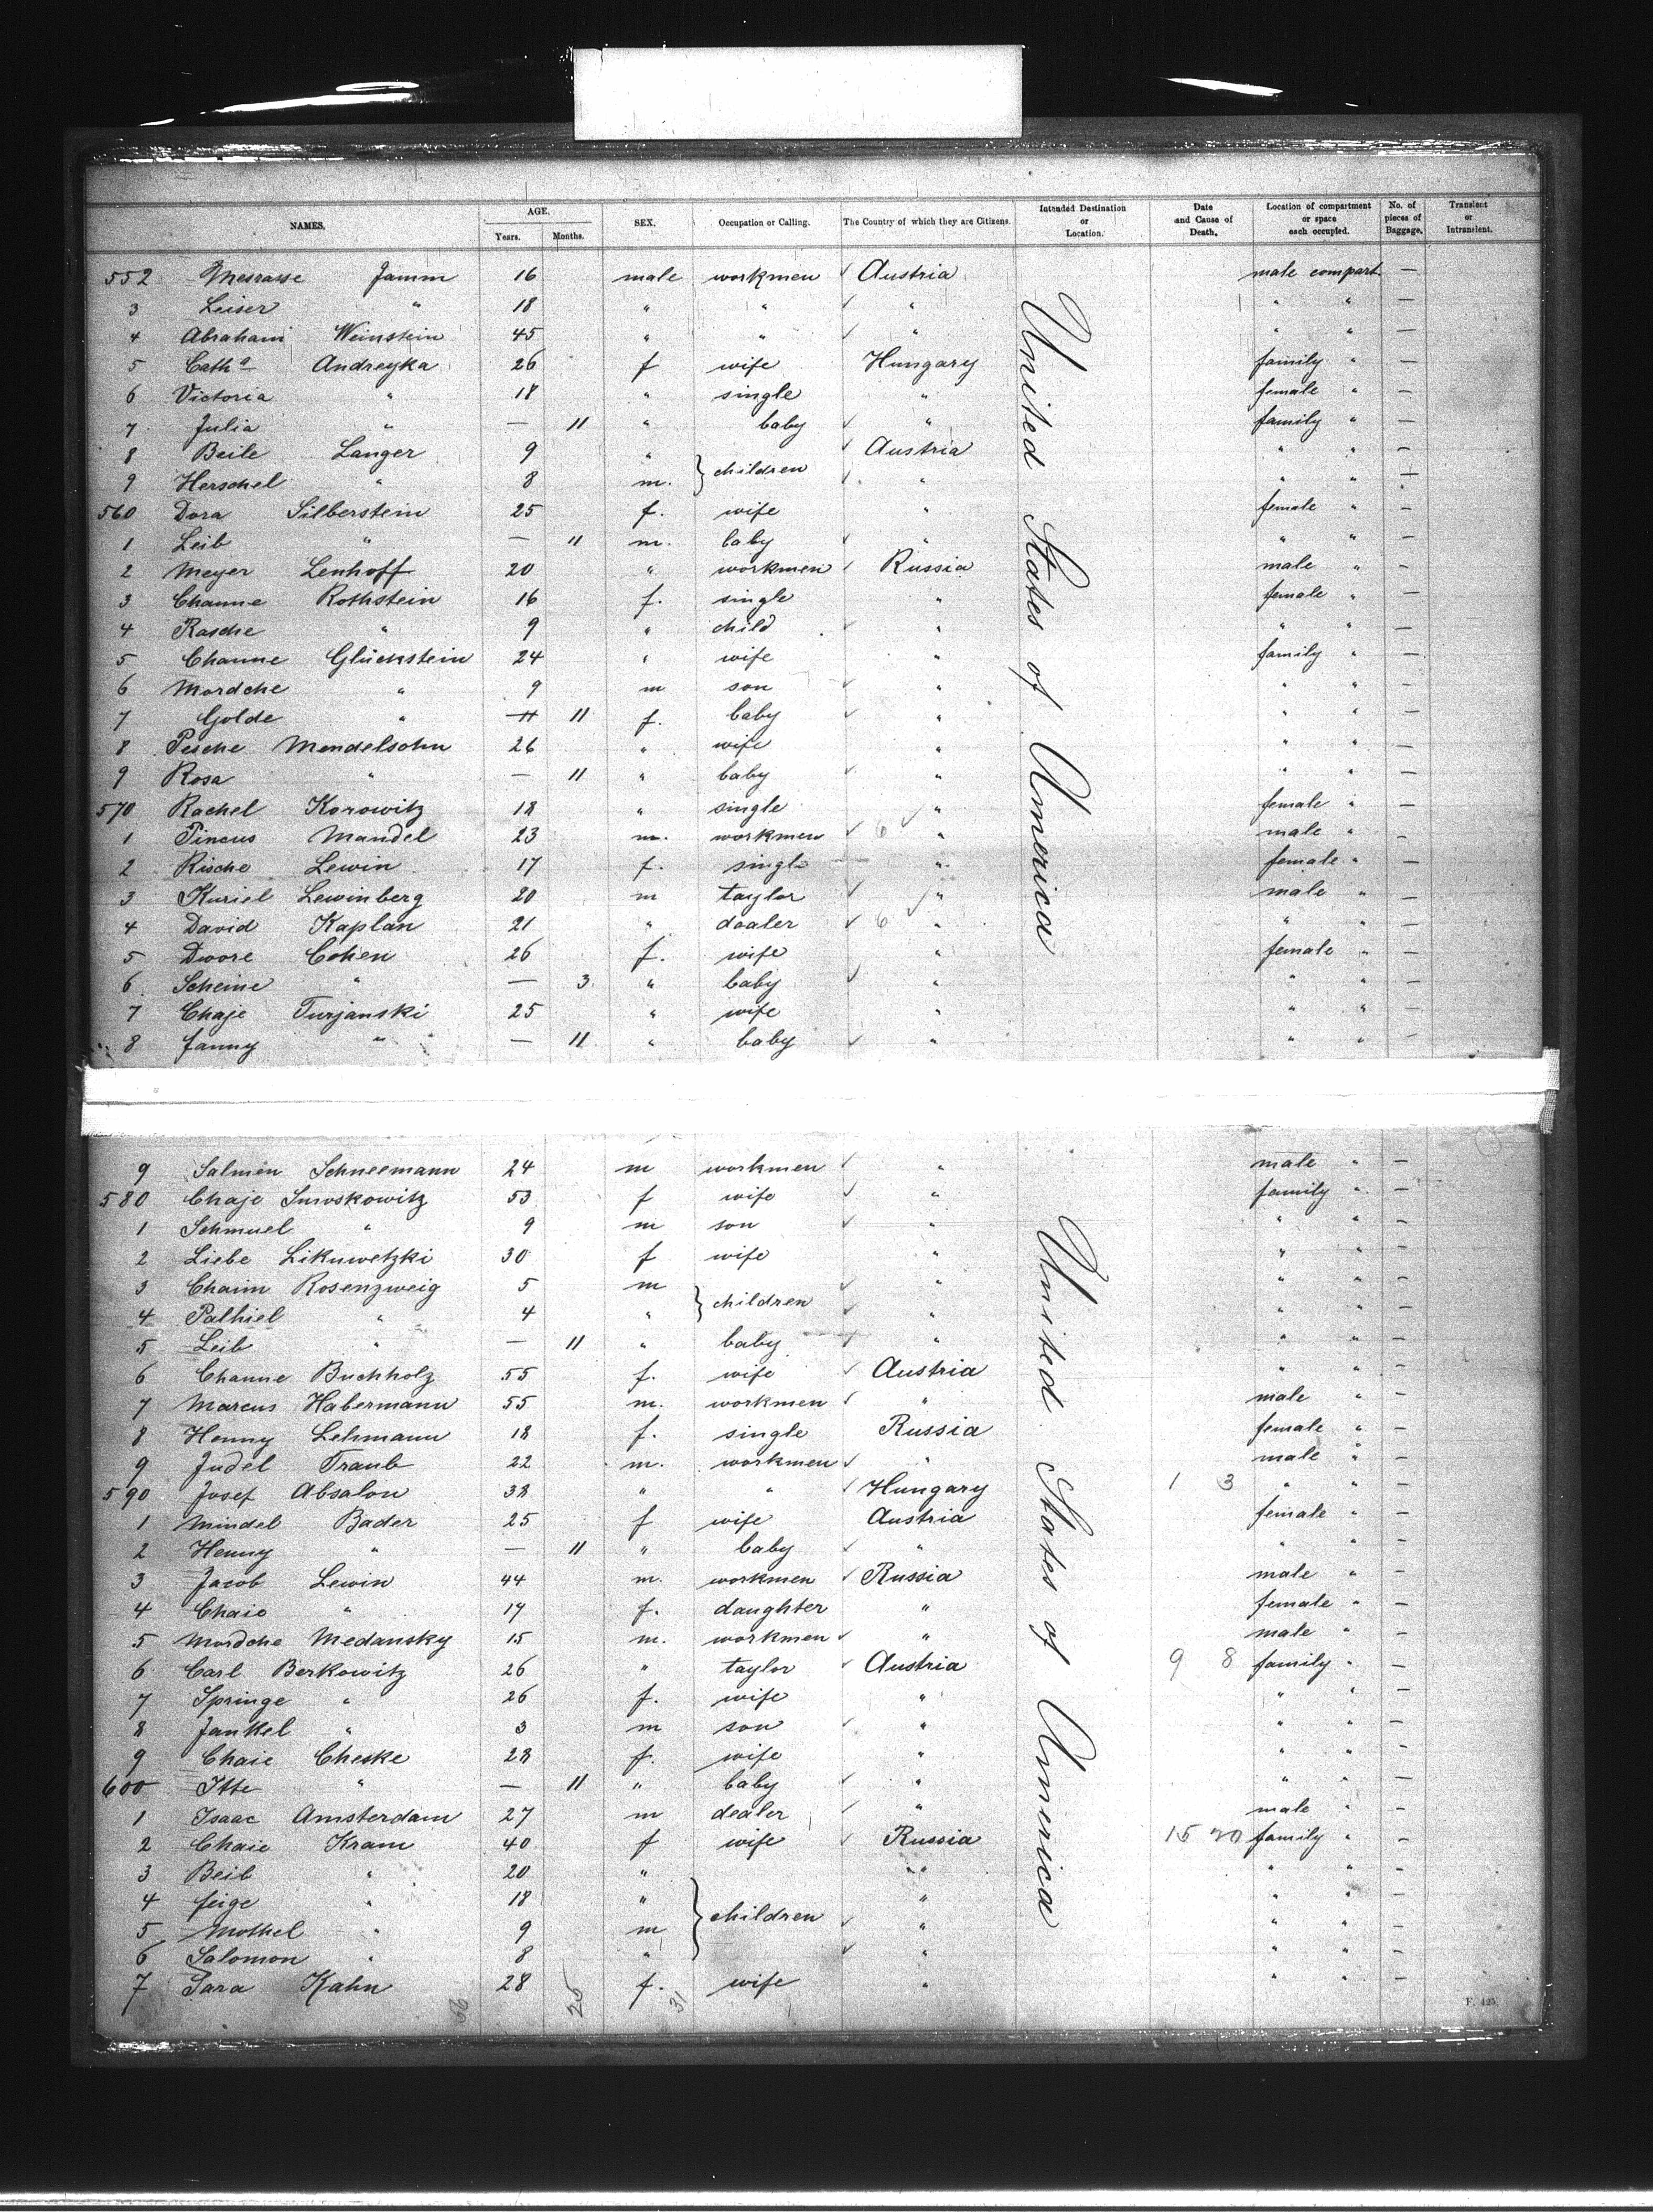 NAMES. AGE. Years. Months. SEX. Occupation or Calling. The Country of which they are Citizens. Intended Destination or Location. Date and Cause of Death. Location of compartment or space each occupied. No. of pieces of Baggage. Transient or Intransient.
552 Mesrasse Jamm 16 male workmen ✓ Austria male compart. —
3 Leiser " 18 " " ✓ " " " —
4 Abraham Weinstein 45 " " ✓ " " " —
5 Cath.a Andreyka 26 f wife Hungary family " —
6 Victoria " 18 " single " female " —
7 Julia " — 11 " baby ✓ " family " —
8 Beile Langer 9 " } children ✓ Austria " " —
9 Herschel " 8 m. ✓ " " " —
560 Dora Silberstein 25 f. wife " female " —
1 Leib " — 11 m. baby ✓ " " " —
2 Meyer Lenhoff 20 " workmen ✓ Russia male " —
3 Channe Rothstein 16 f. single " female " —
4 Rasche " 9 " child ✓ " " " —
5 Channe Glückstein 24 " wife " family " —
6 Mordche " 9 m son ✓ " " " —
7 Golde " 11 11 f. baby ✓ " " " —
8 Pesche Mendelsohn 26 " wife " " " —
9 Rosa " — 11 " baby ✓ " " " —
570 Rachel Korowitz 18 " single " female " —
1 Pincus Mandel 23 m. workmen ✓ 6 ✓ " male " —
2 Rische Lewin 17 f. single " female " —
3 Kuriel Lewinberg 20 m taylor ✓ " male " —
4 David Kaplan 21 " dealer ✓ 6 ✓ " " " —
5 Dwore Cohen 26 f. wife " female " —
6 Scheine " — 3 " baby ✓ " " " —
7 Chaje Turjanski 25 " wife " " " —
8 Fanny " — 11 " baby ✓ " " "
United States of America
9 Salmen Schneemann 24 m workmen ✓ " male " —
580 Chaje Suroskowitz 53 f wife ✓ " family " —
1 Schmuel " 9 m son ✓ " " " —
2 Liebe Likuwetzki 30 f wife " " " —
3 Chaim Rosenzweig 5 m } children ✓ " " " —
4 Palhiel " 4 " ✓ " " " —
5 Leib " — 11 " baby ✓ " " " —
6 Channe Buchholz 55 f. wife ✓ Austria " " —
7 Marcus Habermann 55 m. workmen ✓ " male " —
8 Henny Lehmann 18 f. single Russia female " —
9 Judel Traub 22 m. workmen ✓ " male " —
590 Josef Absalon 38 " " ✓ Hungary 1 3 " " —
1 Mindel Bader 25 f wife Austria female " —
2 Henny " — 11 " baby ✓ " " " —
3 Jacob Lewin 44 m. workmen ✓ Russia male " —
4 Chaie " 17 f. daughter " female " —
5 Mordche Medansky 15 m. workmen ✓ " male " —
6 Carl Berkowitz 26 " taylor ✓ Austria 9 8 family " —
7 Springe " 26 f. wife " " " —
8 Jankel " 3 m son ✓ " " " —
9 Chaie Cheske 28 f. wife " " " —
600 Itte " — 11 " baby ✓ " " " —
1 Isaac Amsterdam 27 m dealer ✓ " male " —
2 Chaie Kram 40 f wife ✓ Russia 15 20 family " —
3 Beil " 20 " " " " —
4 Feige " 18 " } children " " " —
5 Mothel " 9 m ✓ " " " —
6 Salomon " 8 " ✓ " " " —
7 Sara Kahn 28 f. wife " " " —
United States of America
29 25 31
F. 425.